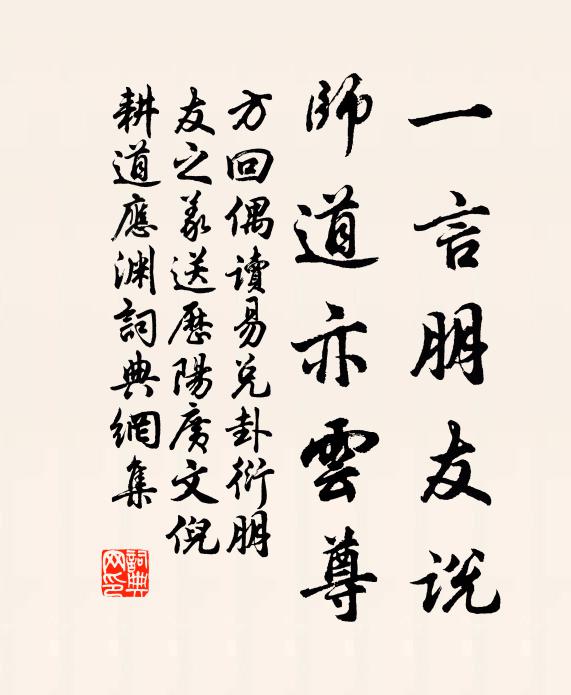 一言朋友説
師道亦雲尊
方回偶讀易兑卦衍朋
友之義送歷陽廣文倪
耕道應淵詞典網集
詞典
网印